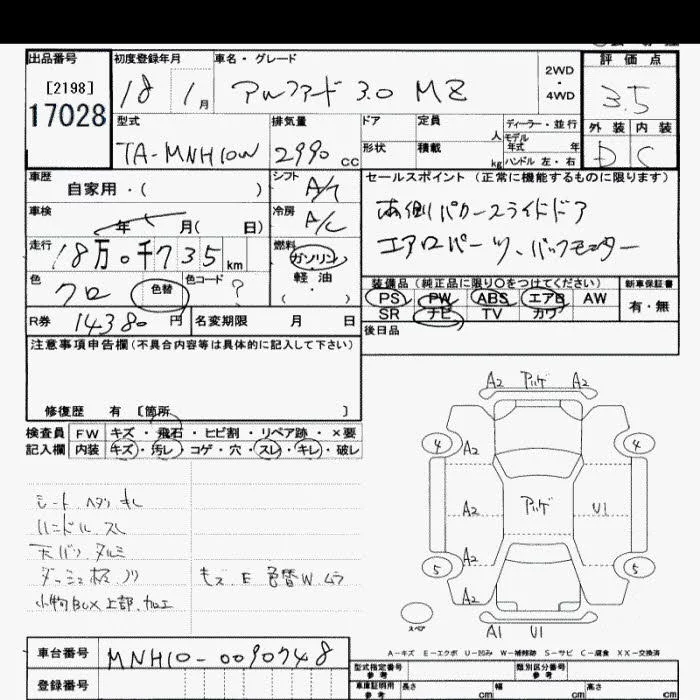 出品番号 初度登録年月 車名・グレード 評価点
[2198] 17028 18 1月 アルファード 3.0 MZ 2WD・4WD 3.5
型式 排気量 ドア 定員 人 ディーラー・並行 外装 内装
TA-MNH10W 2990cc 形状 積載 kg モデル年式 年 ハンドル 左・右 D C
車歴 シフト セールスポイント (正常に機能するものに限ります)
自家用・( ) A/T
車検 冷房 両側パワースライドドア
年 月( 日) A/C エアロパーツ、バックモニター
走行 燃料
18万0千735km ガソリン・軽油・( )
色 色替 色コード 装備品 (純正品に限り○をつけてください) 新車保証書
クロ ? PS PW ABS エアB AW 有・無
SR ナビ TV カワ
R券 14380円 名変期限 月 日 後日品
注意事項申告欄(不具合内容等は具体的に記入して下さい)
修復歴 有 [箇所 ]
検査員 FW キズ・飛石・ヒビ割・リペア跡・×要
記入欄 内装 キズ・汚レ・コゲ・穴・スレ・キレ・破レ
シート、ヘタリ キレ
ハンドル スレ
天バリ タルミ
ダッシュ板 ノリ キズ、E 色替W、ムラ
小物BOX上部、加工
A2 アリゲ A2
4 A2 4
A2 アリゲ U1
5 A2 5
A2
スペア A1 U1
A-キズ E-エクボ U-凹み W-補修跡 S-サビ C-腐食 XX-交換済
車台番号 MNH10-0090748 型式指定番号 参考 類別区分番号 参考
登録番号 車庫証明用 参考 長さ cm 幅 cm 高さ cm